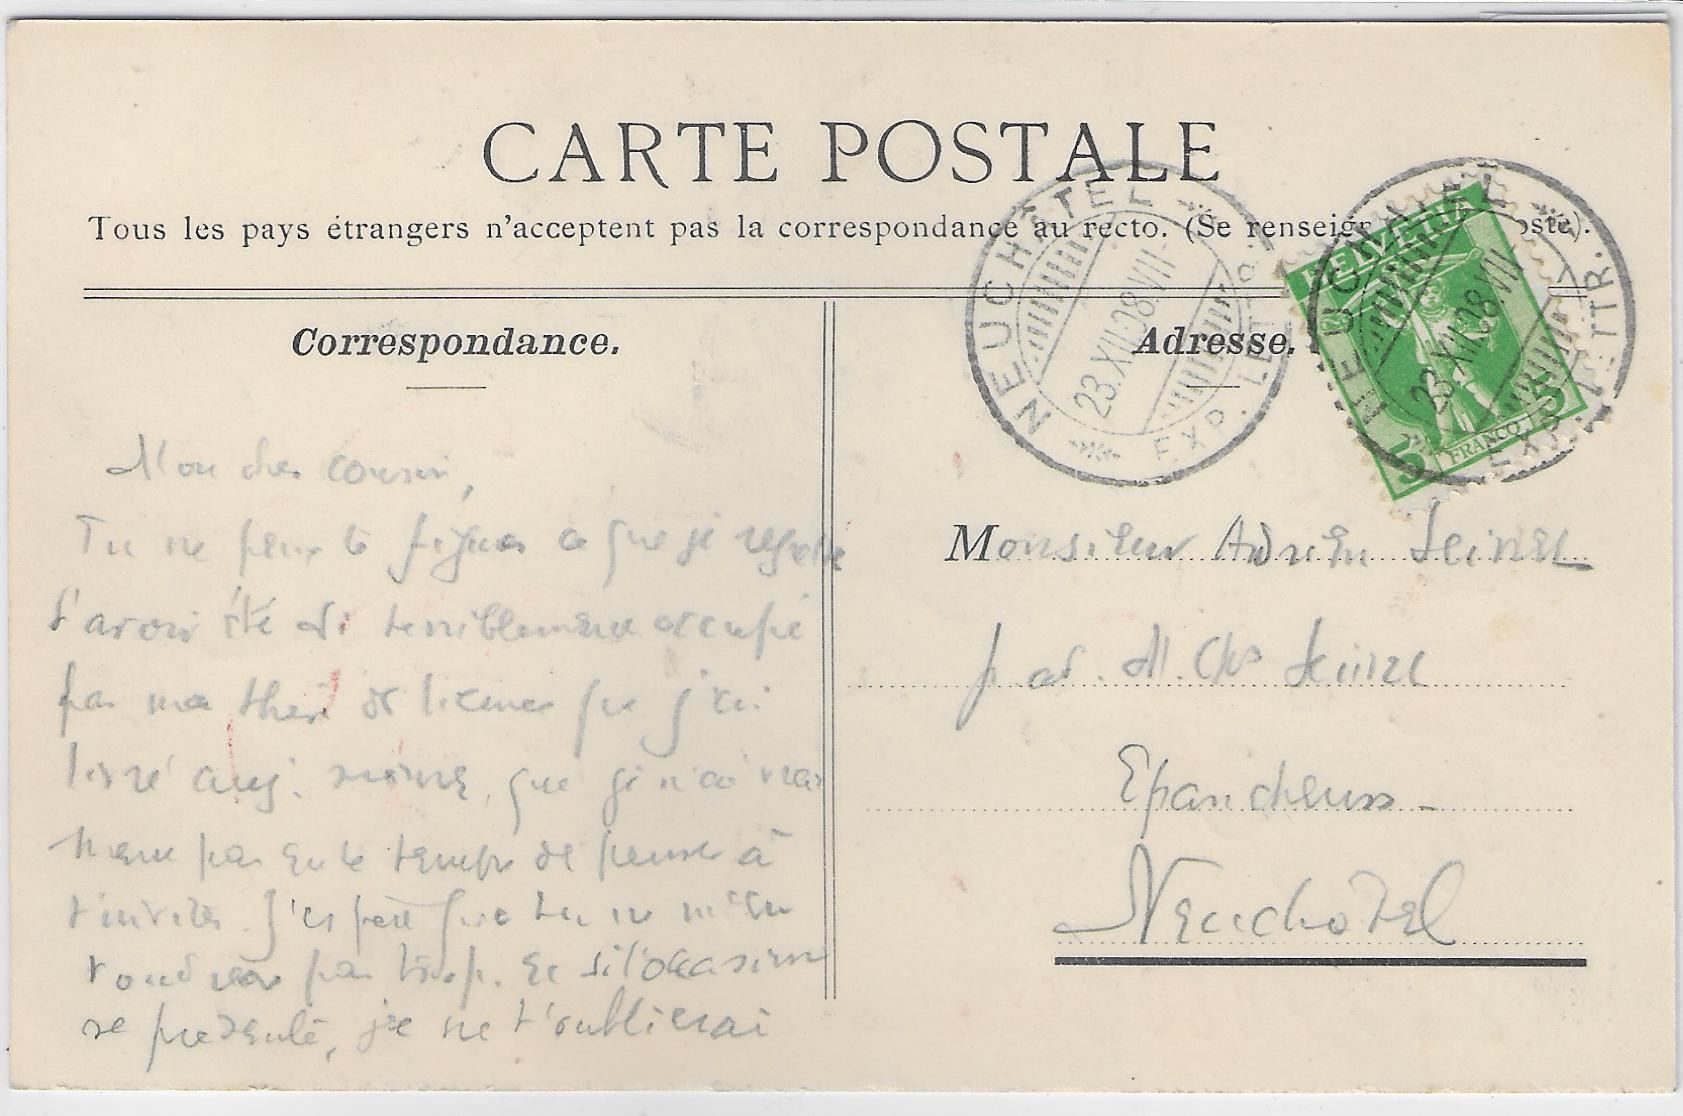 CARTE POSTALE
Tous les pays étrangers n'acceptent pas la correspondance au recto. (Se renseig oste).
Correspondance.
Adresse.
NEUCHÂTEL
23.XII.08.VII
EXP. LETTR.
HELVETIA
5 FRANCO 5
NEUCHÂTEL
23.XII.08.VII
EXP. LETTR.
Mon cher cousin,
Tu ne peux te figurer ce que je regrette
d'avoir été si terriblement occupé
par ma thèse de licence que j'ai
livré auj. même, que je n'ai vrai
ment pas eu le temps de penser à
t'inviter. J'espère que tu ne m'en
voudras pas trop. Et si l'occasion
se présente, je ne t'oublierai
Monsieur Adrien
par. M. Chs
Epancheurs
Neuchâtel